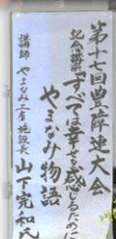 第十七回豊障連大会
記念講演 すべては幸せを感じるために
やまなみ物語
講師 やまなみ工房施設長 山下完和氏